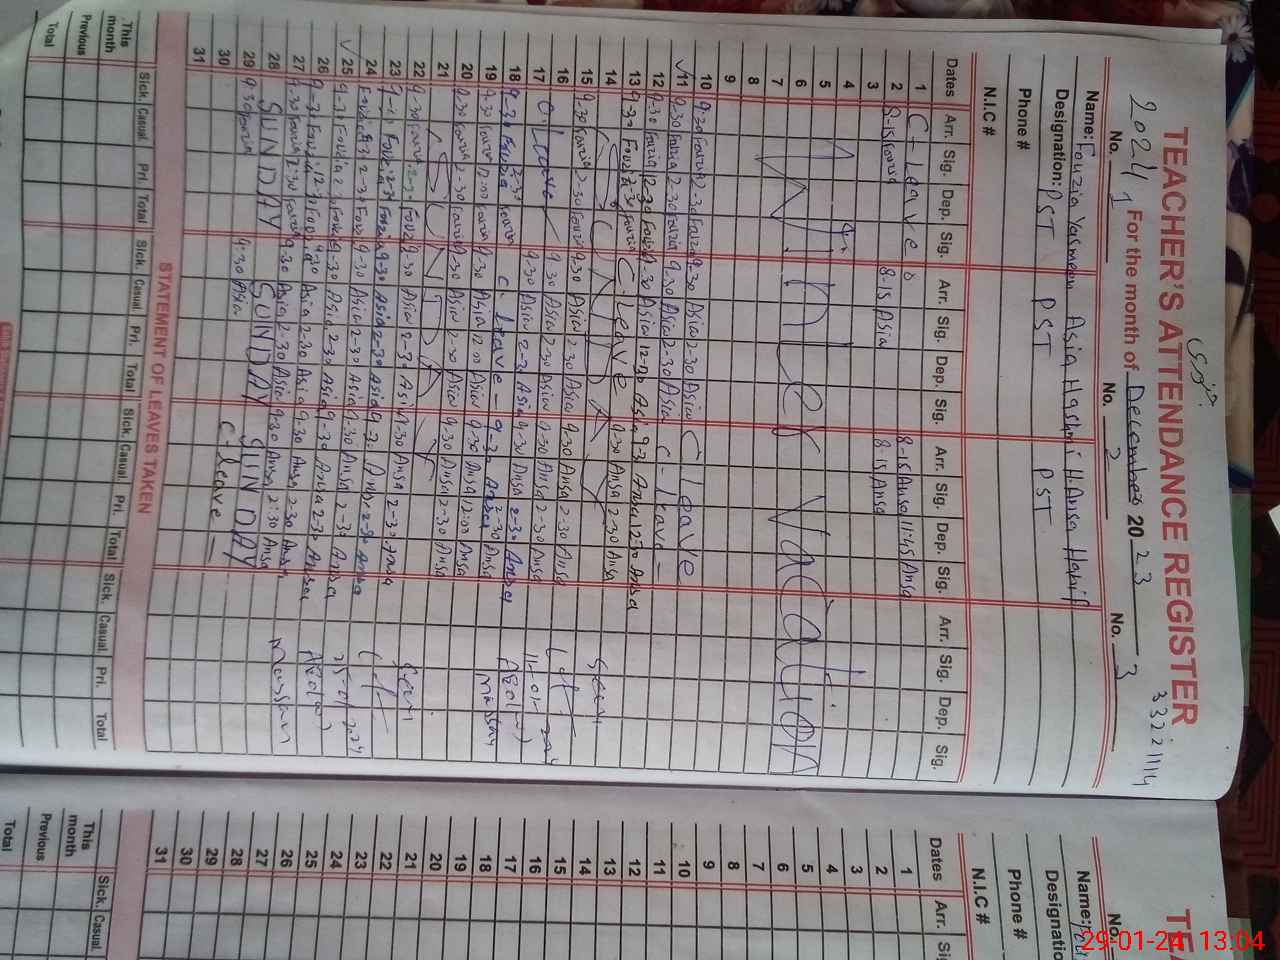 33221114
TEACHER'S ATTENDANCE REGISTER
2024 For the month of December 2023
No. 1 No. 2 No. 3
Name: Fouzia Yasmeen Asia Hashmi H.Ansa Hanif
Designation: PST PST PST
Phone #
N.I.C #
Dates Arr. Sig. Dep. Sig. Arr. Sig. Dep. Sig. Arr. Sig. Dep. Sig. Arr. Sig. Dep. Sig.
1 C-Leave 8-15 Ansa 11:45 Ansa
2 8-15 Fouzia 8-15 Asia 8-15 Ansa
3
4
5
6 Winter Vacation
7
8
9
10 9-30 Fouzia 2-30 Fouzia 9-30 Asia 2-30 Asia C-Leave
11 9-30 Fouzia 2-30 Fouzia 9-30 Asia 2-30 Asia C-Leave
12 9-30 Fouzia 12-30 Fouzia 9-30 Asia 12-30 Asia 9-30 Ansa 12-30 Ansa
13 9-30 Fouzia 2-30 Fouzia C-Leave 9-30 Ansa 2-30 Ansa
14 SUNDAY
15 9-30 Fouzia 2-30 Fouzia 9-30 Asia 2-30 Asia 9-30 Ansa 2-30 Ansa
16 9-30 Asia 2-30 Asia 9-30 Ansa 2-30 Ansa
17 C-Leave 9-30 Asia 2-30 Asia 9-30 Ansa 2-30 Ansa
18 9-30 Fouzia 2-30 Fouzia C-Leave 9-30 Ansa 2-30 Ansa
19 9-30 Fouzia 12:00 Fouzia 9-30 Asia 12:00 Asia 9-30 Ansa 12:00 Ansa
20 9-30 Fouzia 2-30 Fouzia 9-30 Asia 2-30 Asia 9-30 Ansa 2-30 Ansa
21 SUNDAY
22 9-30 Fouzia 2-30 Fouzia 9-30 Asia 2-30 Asia 9-30 Ansa 2-30 Ansa
23 9-30 Fouzia 2-30 Fouzia 9-30 Asia 2-30 Asia 9-30 Ansa 2-30 Ansa
24 Fouzia 2-30 Fouzia 9-30 Asia 2-30 Asia 9-30 Ansa 2-30 Ansa
25 9-30 Fouzia 2-30 Fouzia 9-30 Asia 2-30 Asia 9-30 Ansa 2-30 Ansa
26 9-30 Fouzia 12-30 Fouzia 9-30 Asia 2-30 Asia 9-30 Ansa 2-30 Ansa
27 9-30 Fouzia 2-30 Fouzia 9-30 Asia 2-30 Asia 9-30 Ansa 2:30 Ansa
28 SUNDAY SUNDAY SUNDAY
29 9-30 Fouzia 9-30 Asia C-Leave
30
31
Seen
11-01-2024
AEO(W)
Seen
25-01-2024
AEO(W)
STATEMENT OF LEAVES TAKEN
Sick. Casual. Pri. Total Sick. Casual. Pri. Total Sick. Casual. Pri. Total Sick. Casual. Pri. Total
This month
Previous
Total
TEA
No.
Name:
Designatio
Phone #
N.I.C #
Dates Arr. Si
1
2
3
4
5
6
7
8
9
10
11
12
13
14
15
16
17
18
19
20
21
22
23
24
25
26
27
28
29
30
31
Sick. Casual.
This month
Previous
Total
29-01-24 13:04